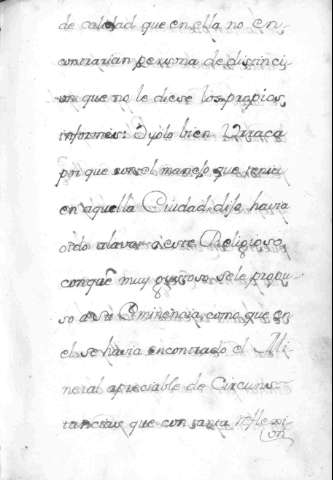 de calidad que en ella no en
contrarian persona de distinci
on que no le diese los propios
informes: Oyolo bien Urraca
por que con el manejo que tenia
en aquella Ciudad dijo havia
oido alavar a este Religioso,
conque muy gustoso se le propu
so a su Eminencia, como que en
el se havia encontrado el Mi
neral apreciable de Circuns
tancias que con tanta reflexi
on